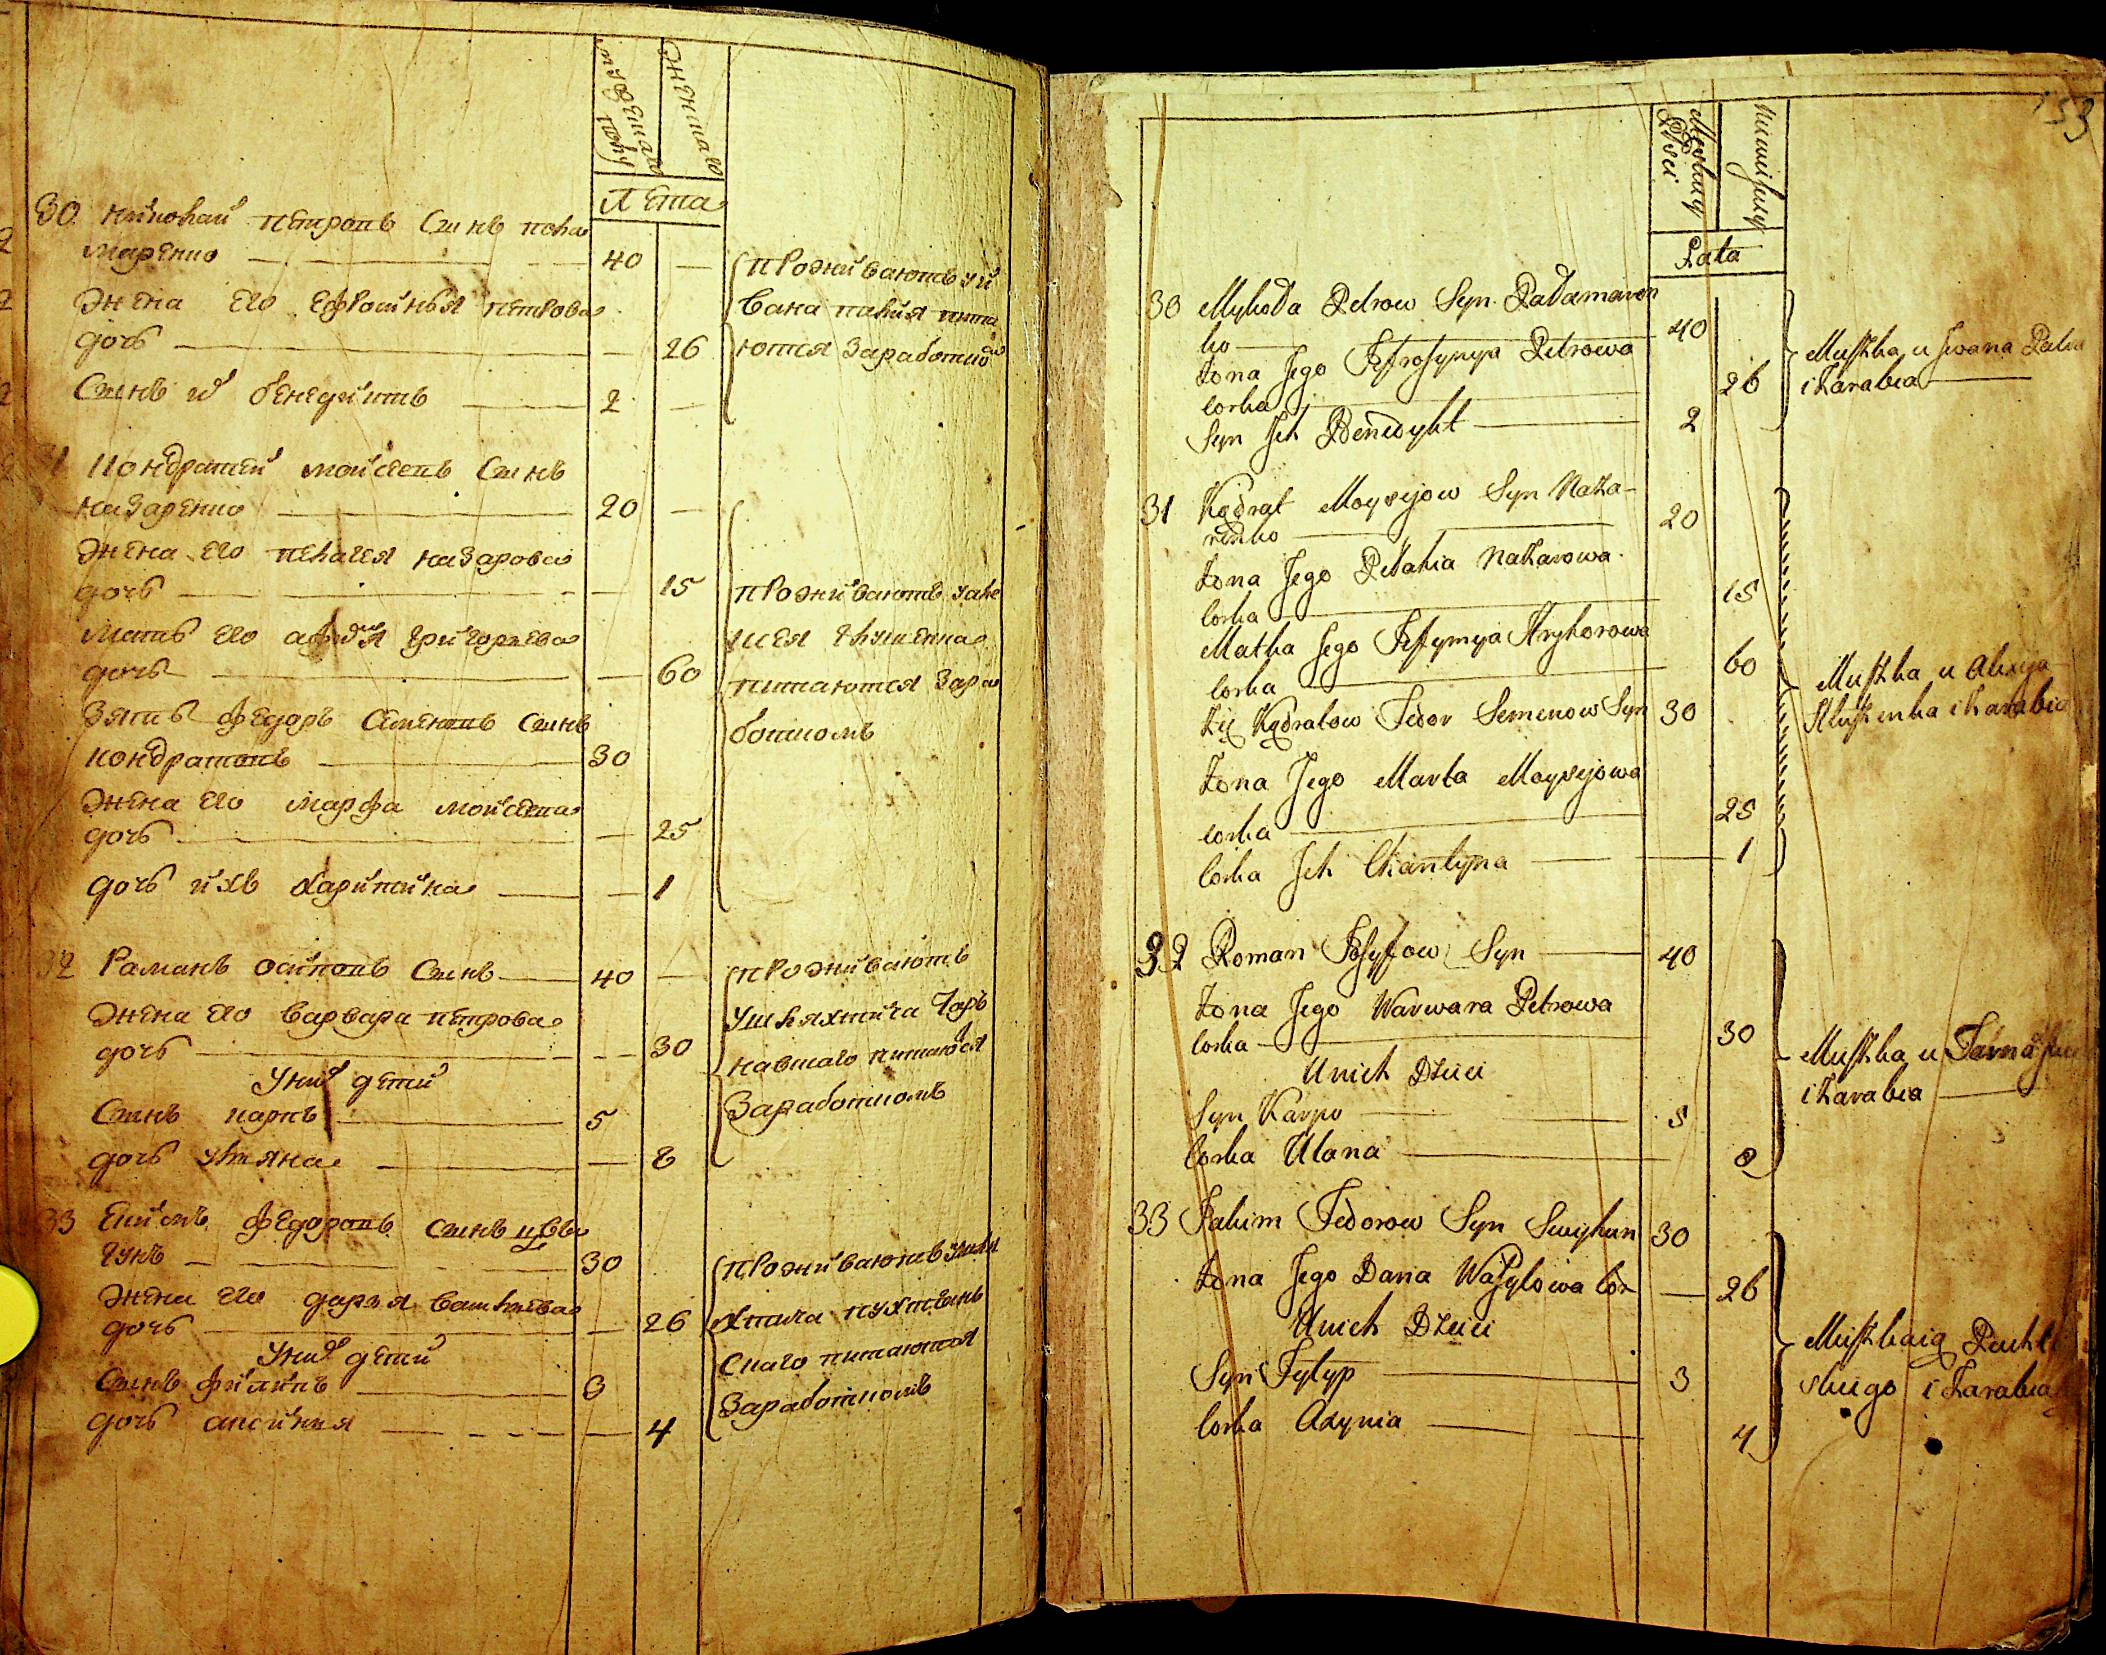 мужеска
полу
женска
Лета
30 николай петровъ синъ пала
маренко 40
Жена его ефросинья петрова
дочь 26
Синъ их бенедиктъ 2
проживаютъ у и
вана палия пита
ются заработко
31 кондратей мойсеевъ синъ
назаренко 20
жена его пелагея назарова
дочь 15
мать его григорьева
дочь 60
зять федоръ семеновъ синъ
кондратовъ 30
жена его марфа мойсеева
дочь 25
дочь ихъ харитина 1
проживаютъ у але
ксея глушенка
питаются зара
боткомъ
32 Романъ осиповъ синъ 40
жена его варвара петрова
дочь 30
у них дети
Синъ карпъ 5
дочь уляна 8
проживаютъ
у шляхтича
питаюся
заработкомъ
33 Екимъ федоровъ синъ цвы
гунъ 30
жена его даря василева
дочь 26
у них дети
Синъ филипъ 3
дочь аксиния 4
проживаютъ у шля
хтича пухтаевъ
скаго питаются
заработкомъ
153
Męskiey
Płci
Lata
30 Mykoła Petrow Syn Pałamaren
ko 40
Żona Jego Jefrosynya Petrowa
Corka 26
Syn Jch Benedykt 2
Miszka u Jwana Palia
i Zarabia
31 Kądrat Moysyjow Syn Naza-
renko 20
Żona Jego Pelahia Nazarowa
Corka 15
Matka Jego Jefymya Hryhorowa
Corka 60
Zięć Kądratow Fedor Semenow Syn 30
Żona Jego Marta Moysyjowa
Corka 25
Corka Jch Charytyna 1
Miszka u Alexyia
Hłuszenka i Zarabia
32 Roman Josyfow Syn 40
Żona Jego Warwara Petrowa
Corka 30
U nich Dzieci
Syn Karpo 5
Corka Ulana 8
Miszka u
i Zarabia
33 Jakim Fedorow Syn Swyhun 30
Żona Jego Daria Wasylowa Cor 26
U nich Dzieci
Syn Fylyp 3
Corka Axynia 4
Miszkaią
skiego i Zarabia